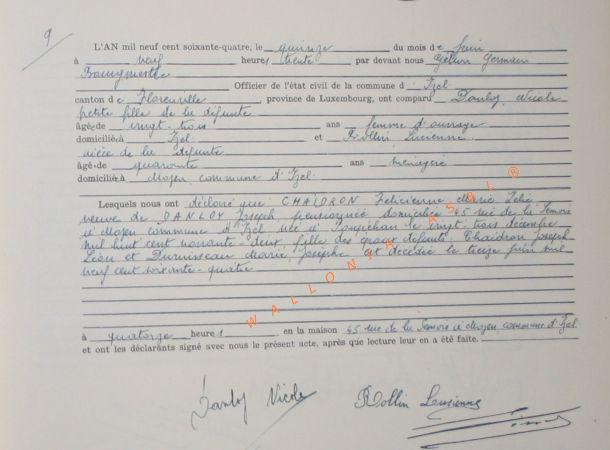 9
L'AN mil neuf cent soixante-quatre, le quinze du mois de juin
à neuf heures trente par devant nous Germain
Officier de l'état civil de la commune d'Izel
canton de Florenville province de Luxembourg, ont comparu Danloy Nicole
petite fille de la défunte
âgée de vingt trois ans femme d'ouvrage
domiciliée à Izel et Rollin Lucienne
nièce de la défunte
âgée de quarante ans ménagère
domiciliée à Moyen commune d'Izel
Lesquels nous ont déclaré que CHAIDRON Félicienne Marie
veuve de DANLOY Joseph, pensionnée domiciliée 45 rue de la Semois
à Moyen commune d'Izel née à le vingt trois décembre
mil huit cent nonante-deux, fille des époux défunts, Chaidron Joseph
Léon et Marie Josèphe est décédée le treize juin mil
neuf cent soixante-quatre
à quatorze heures en la maison 45 rue de la Semois à Moyen commune d'Izel
et ont les déclarants signé avec nous le présent acte, après que lecture leur en a été faite.
Danloy Nicole Rollin Lucienne
WALLONIA ASBL ®